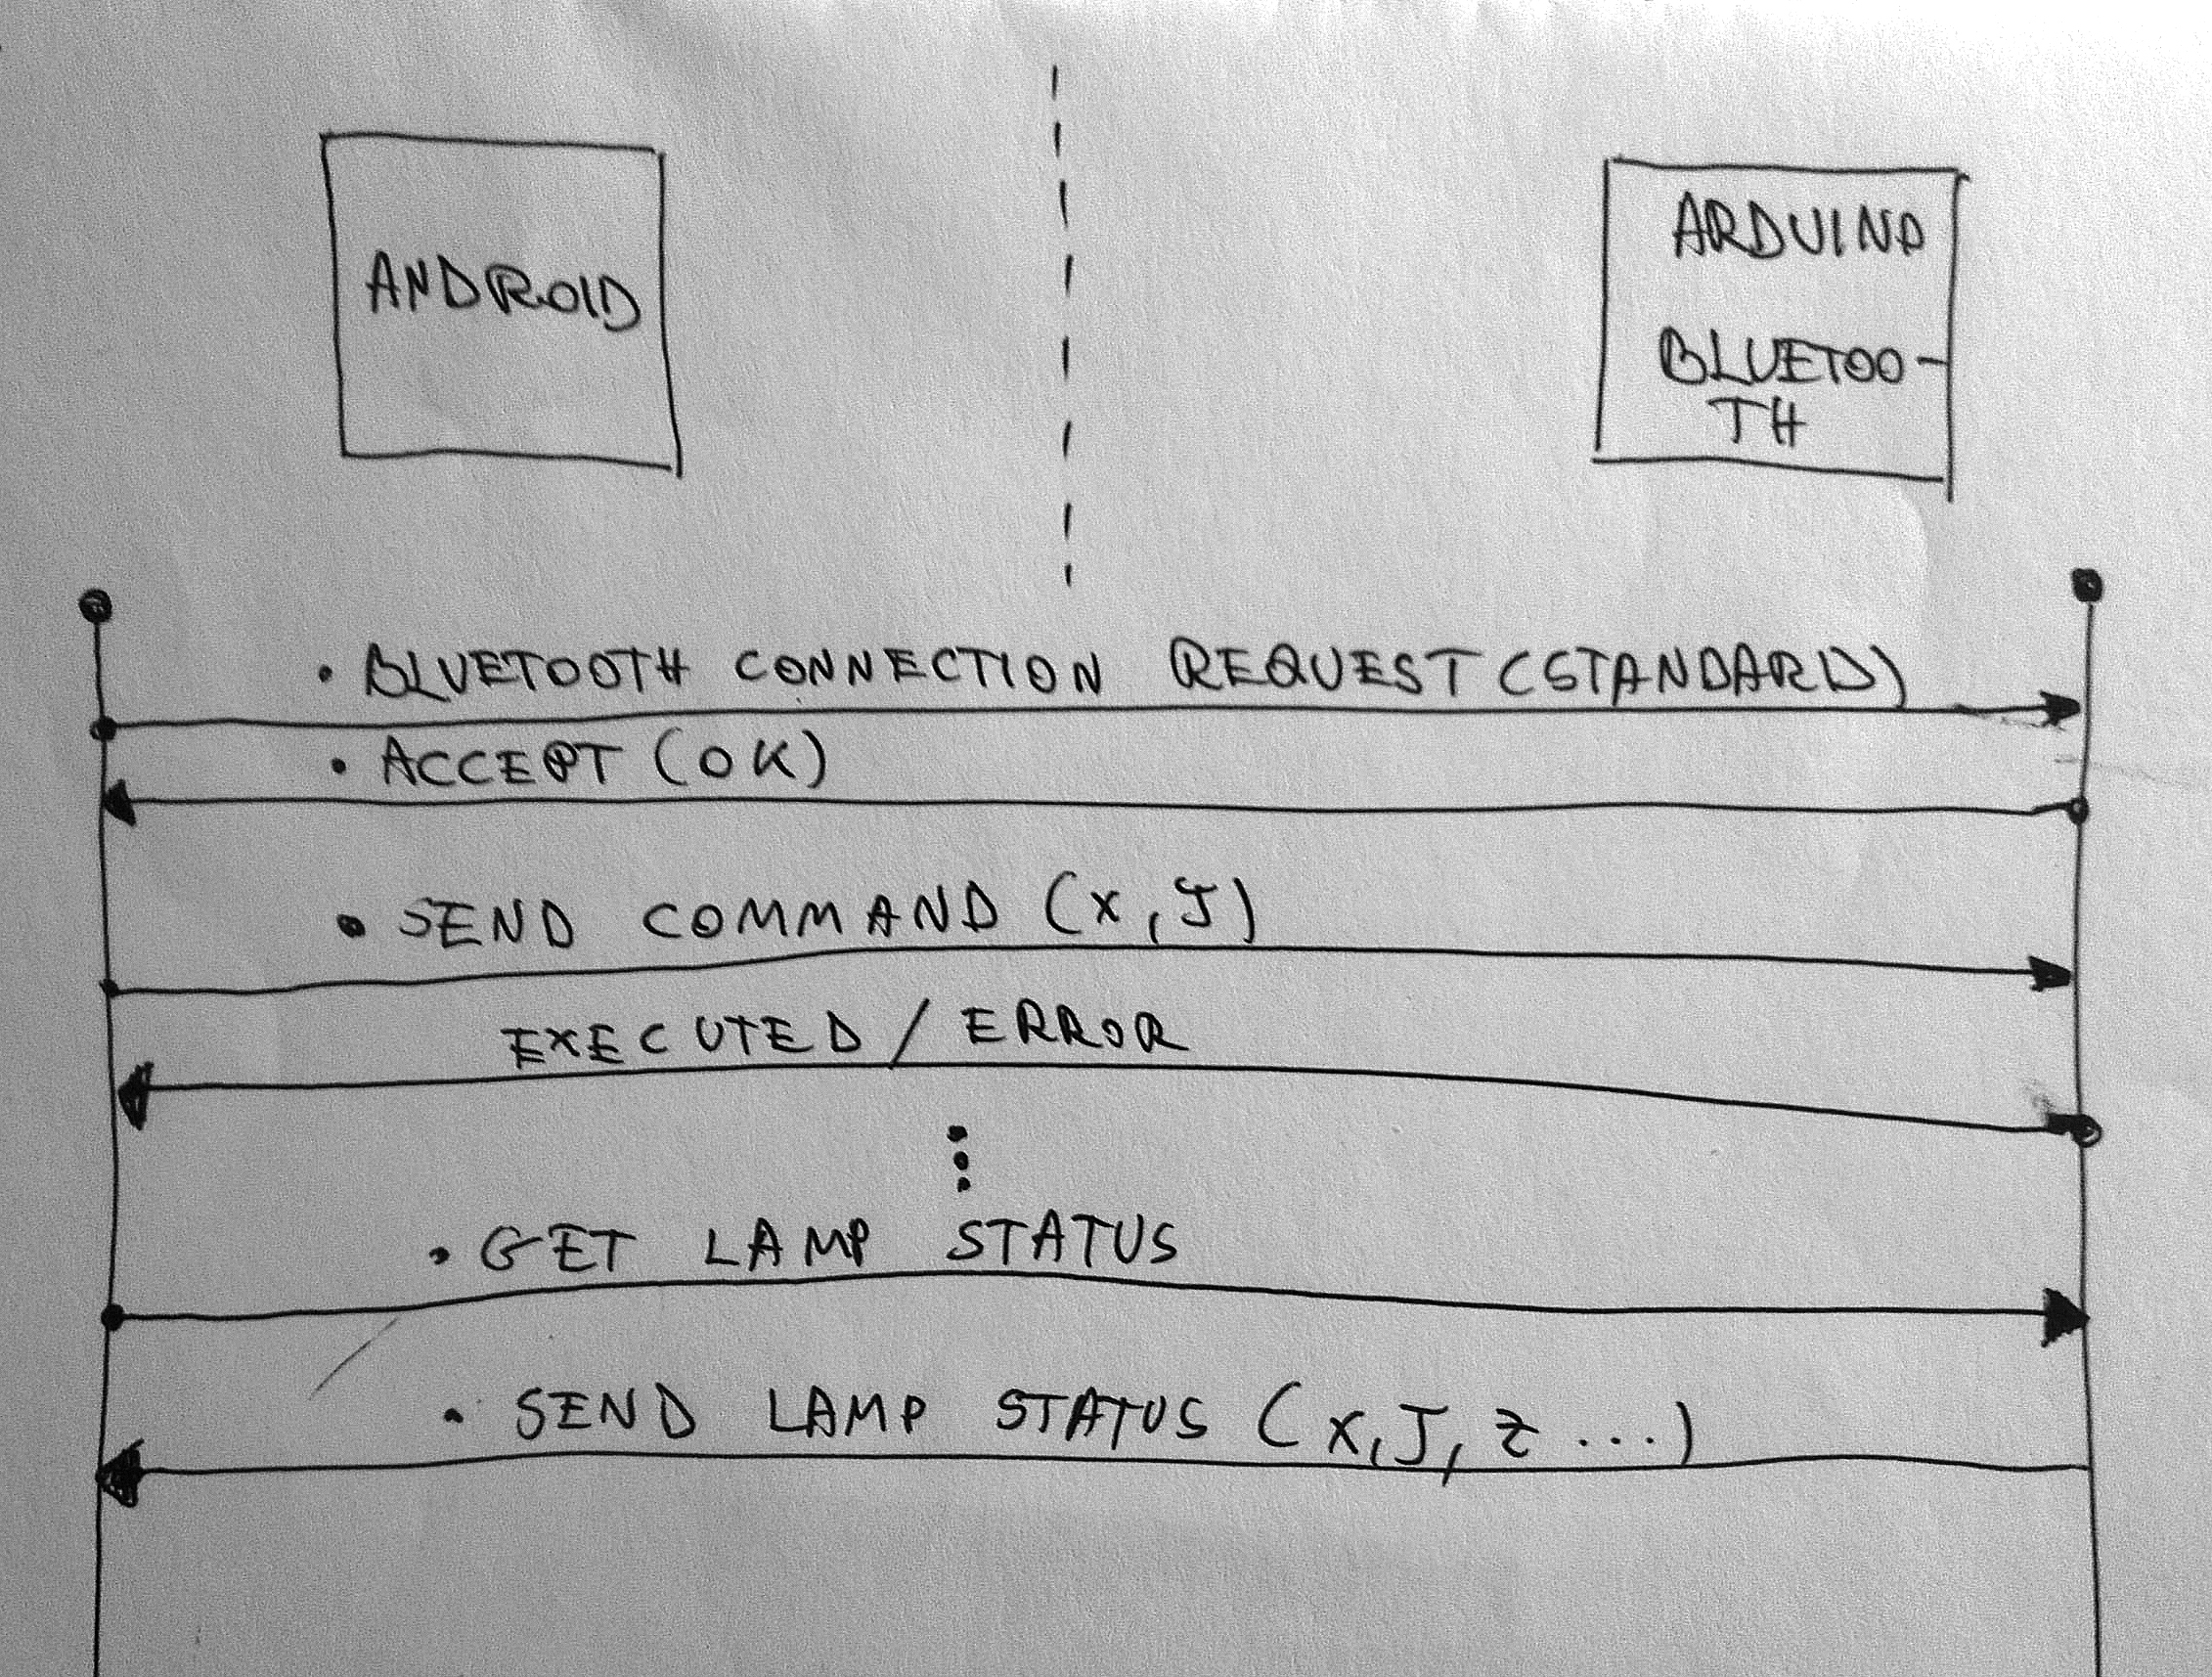 ANDROID
ARDUINO
BLUETOO-
TH
• BLUETOOTH CONNECTION REQUEST (STANDARD)
• ACCEPT (OK)
• SEND COMMAND (X, J)
EXECUTED / ERROR
• GET LAMP STATUS
• SEND LAMP STATUS (X, J, Z ...)